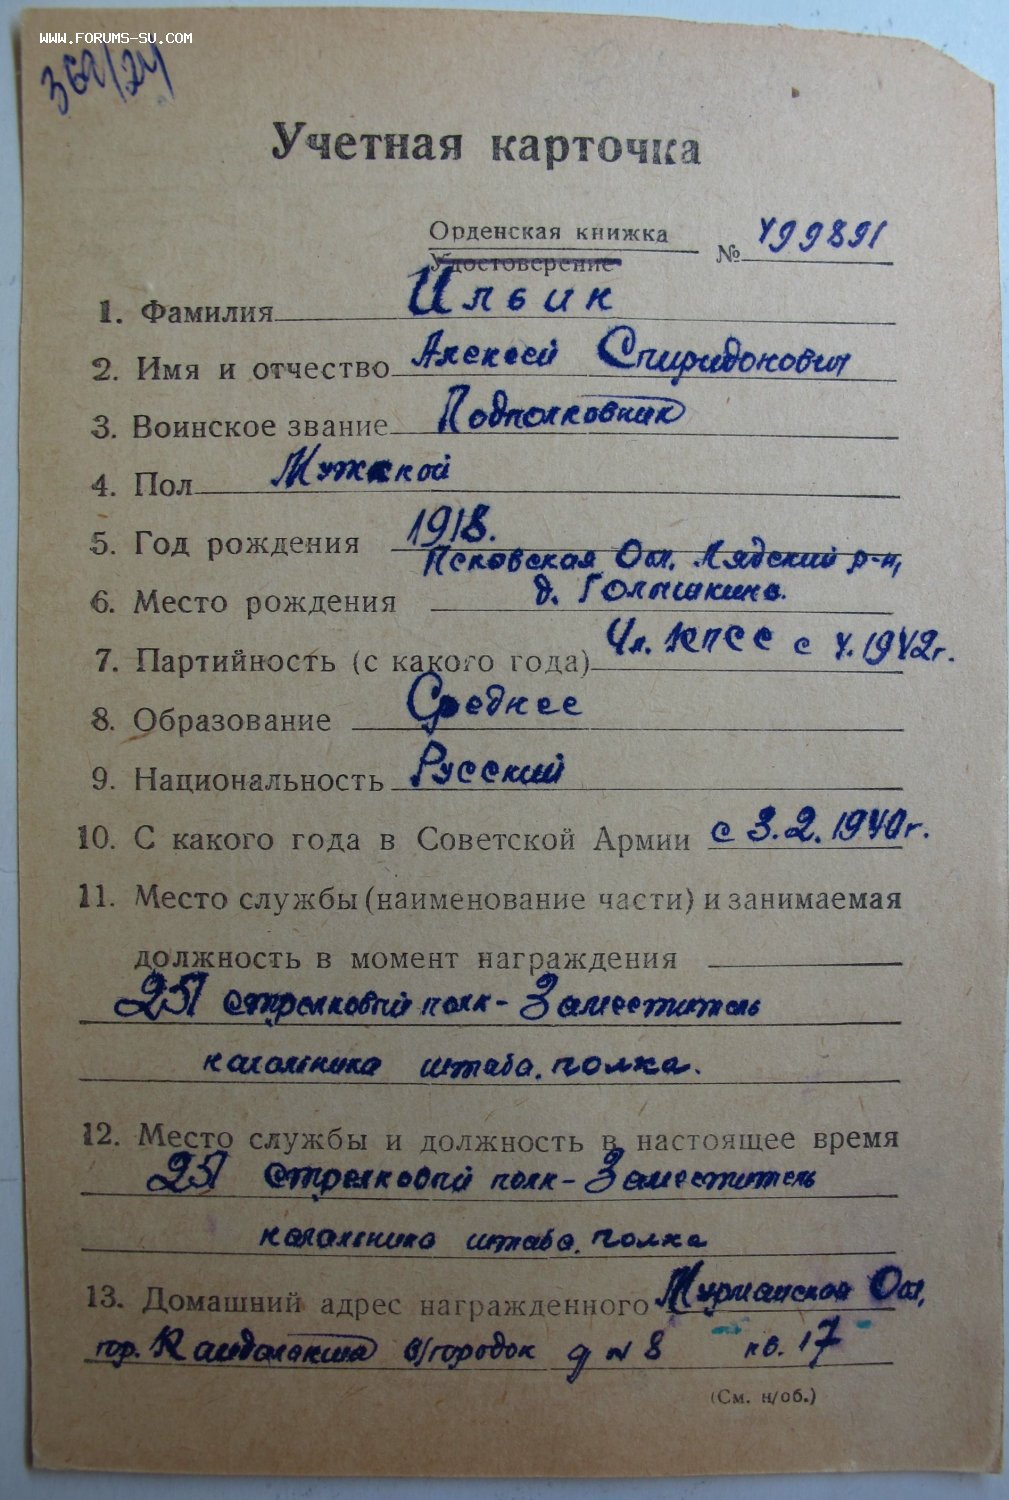 WWW.FORUMS-SU.COM
Учетная карточка
Орденская книжка
Удостоверение
№ 499891
1. Фамилия Ильин
2. Имя и отчество Алексей Спиридонович
3. Воинское звание Подполковник
4. Пол Мужской
5. Год рождения 1918.
Псковская Обл. Лядский р-н,
6. Место рождения д. Голышкино.
7. Партийность (с какого года) Чл. КПСС с 4.1942г.
8. Образование Среднее
9. Национальность Русский
10. С какого года в Советской Армии с 3.2.1940г.
11. Место службы (наименование части) и занимаемая
должность в момент награждения
251 стрелковый полк - Заместитель
начальника штаба полка.
12. Место службы и должность в настоящее время
251 стрелковый полк - Заместитель
начальника штаба полка
13. Домашний адрес награжденного Мурманская Обл,
гор. Кандалакша в/городок д № 8 кв. 17
(См. н/об.)